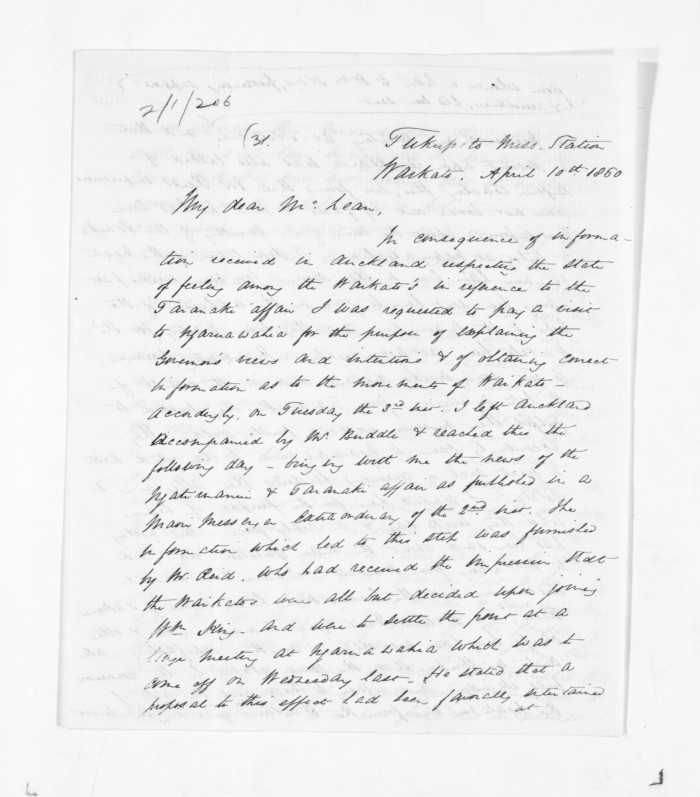 2/1/206
(31.
Tukupoto Miss. Station
Waikato. April 10th 1860
My dear Mc. Lean,
In consequence of informa-
tion received in Auckland respecting the state
of feeling among the Waikato's in reference to the
Taranaki affair I was requested to pay a visit
to Ngaruawahia for the purpose of explaining the
Governor's views and intentions & of obtaining correct
information as to the movements of Waikato -
Accordingly, on Tuesday the 3rd inst. I left Auckland
accompanied by Mr. Buddle & reached this the
following day - bringing with me the news of the
Ngatiruanui & Taranaki affair as published in a
Maori Messenger Extraordinary of the 2nd inst. The
information which led to this step was furnished
by Mr. Reid, who had received the impression that
the Waikatos were all but decided upon joining
Wm King - and were to settle the point at a
large meeting at Ngaruawahia which was to
come off on Wednesday last - He stated that a
proposal to this effect had been favorably entertained
at